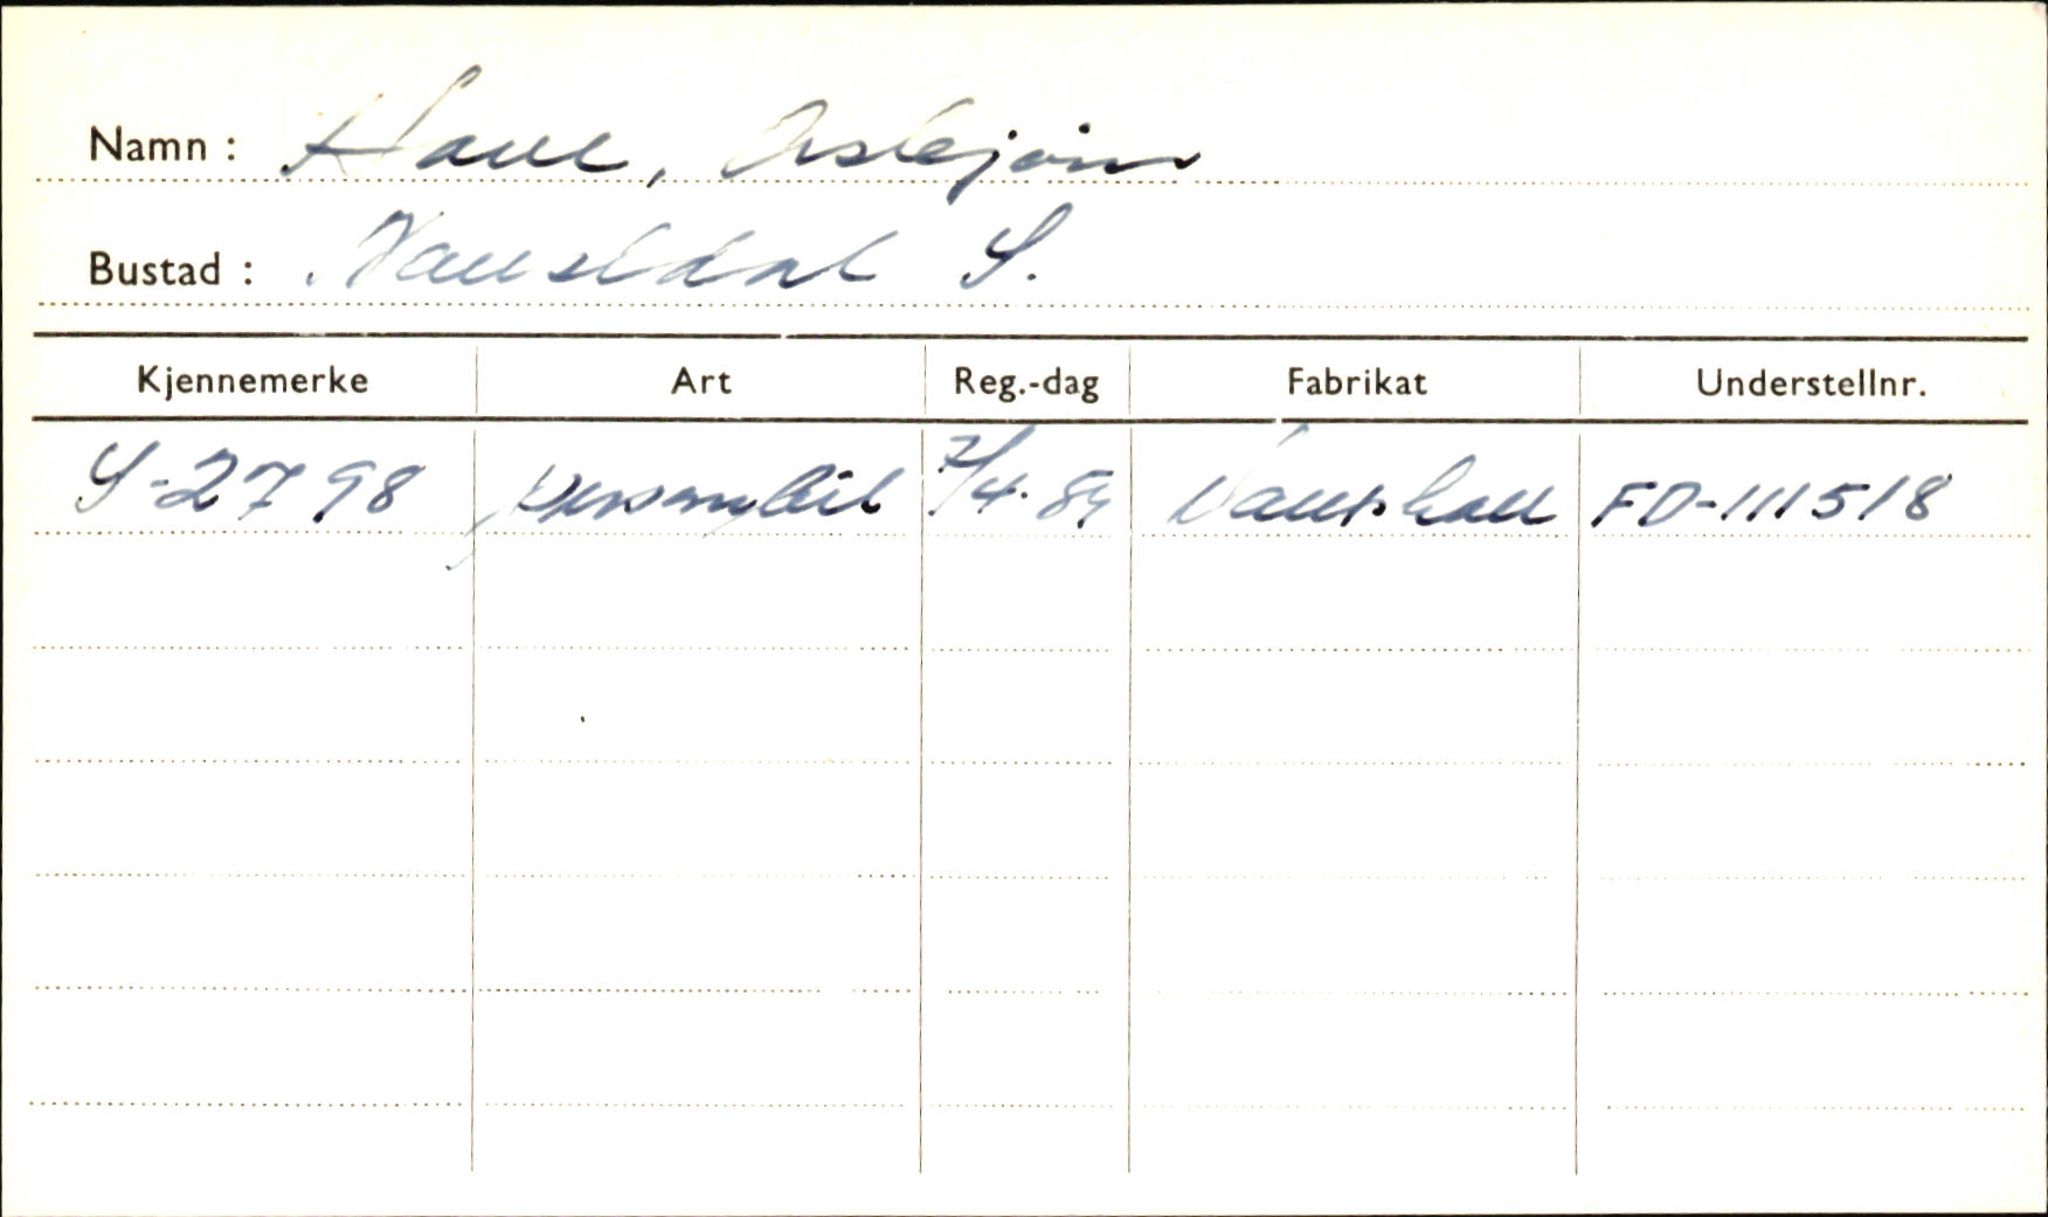 Namn : Haue, Asbjørn
Bustad : Naustdal S.
Kjennemerke Art Reg.-dag Fabrikat Understellnr.
S-2798 personbil 7/4.84 Vauxhall FD-111518